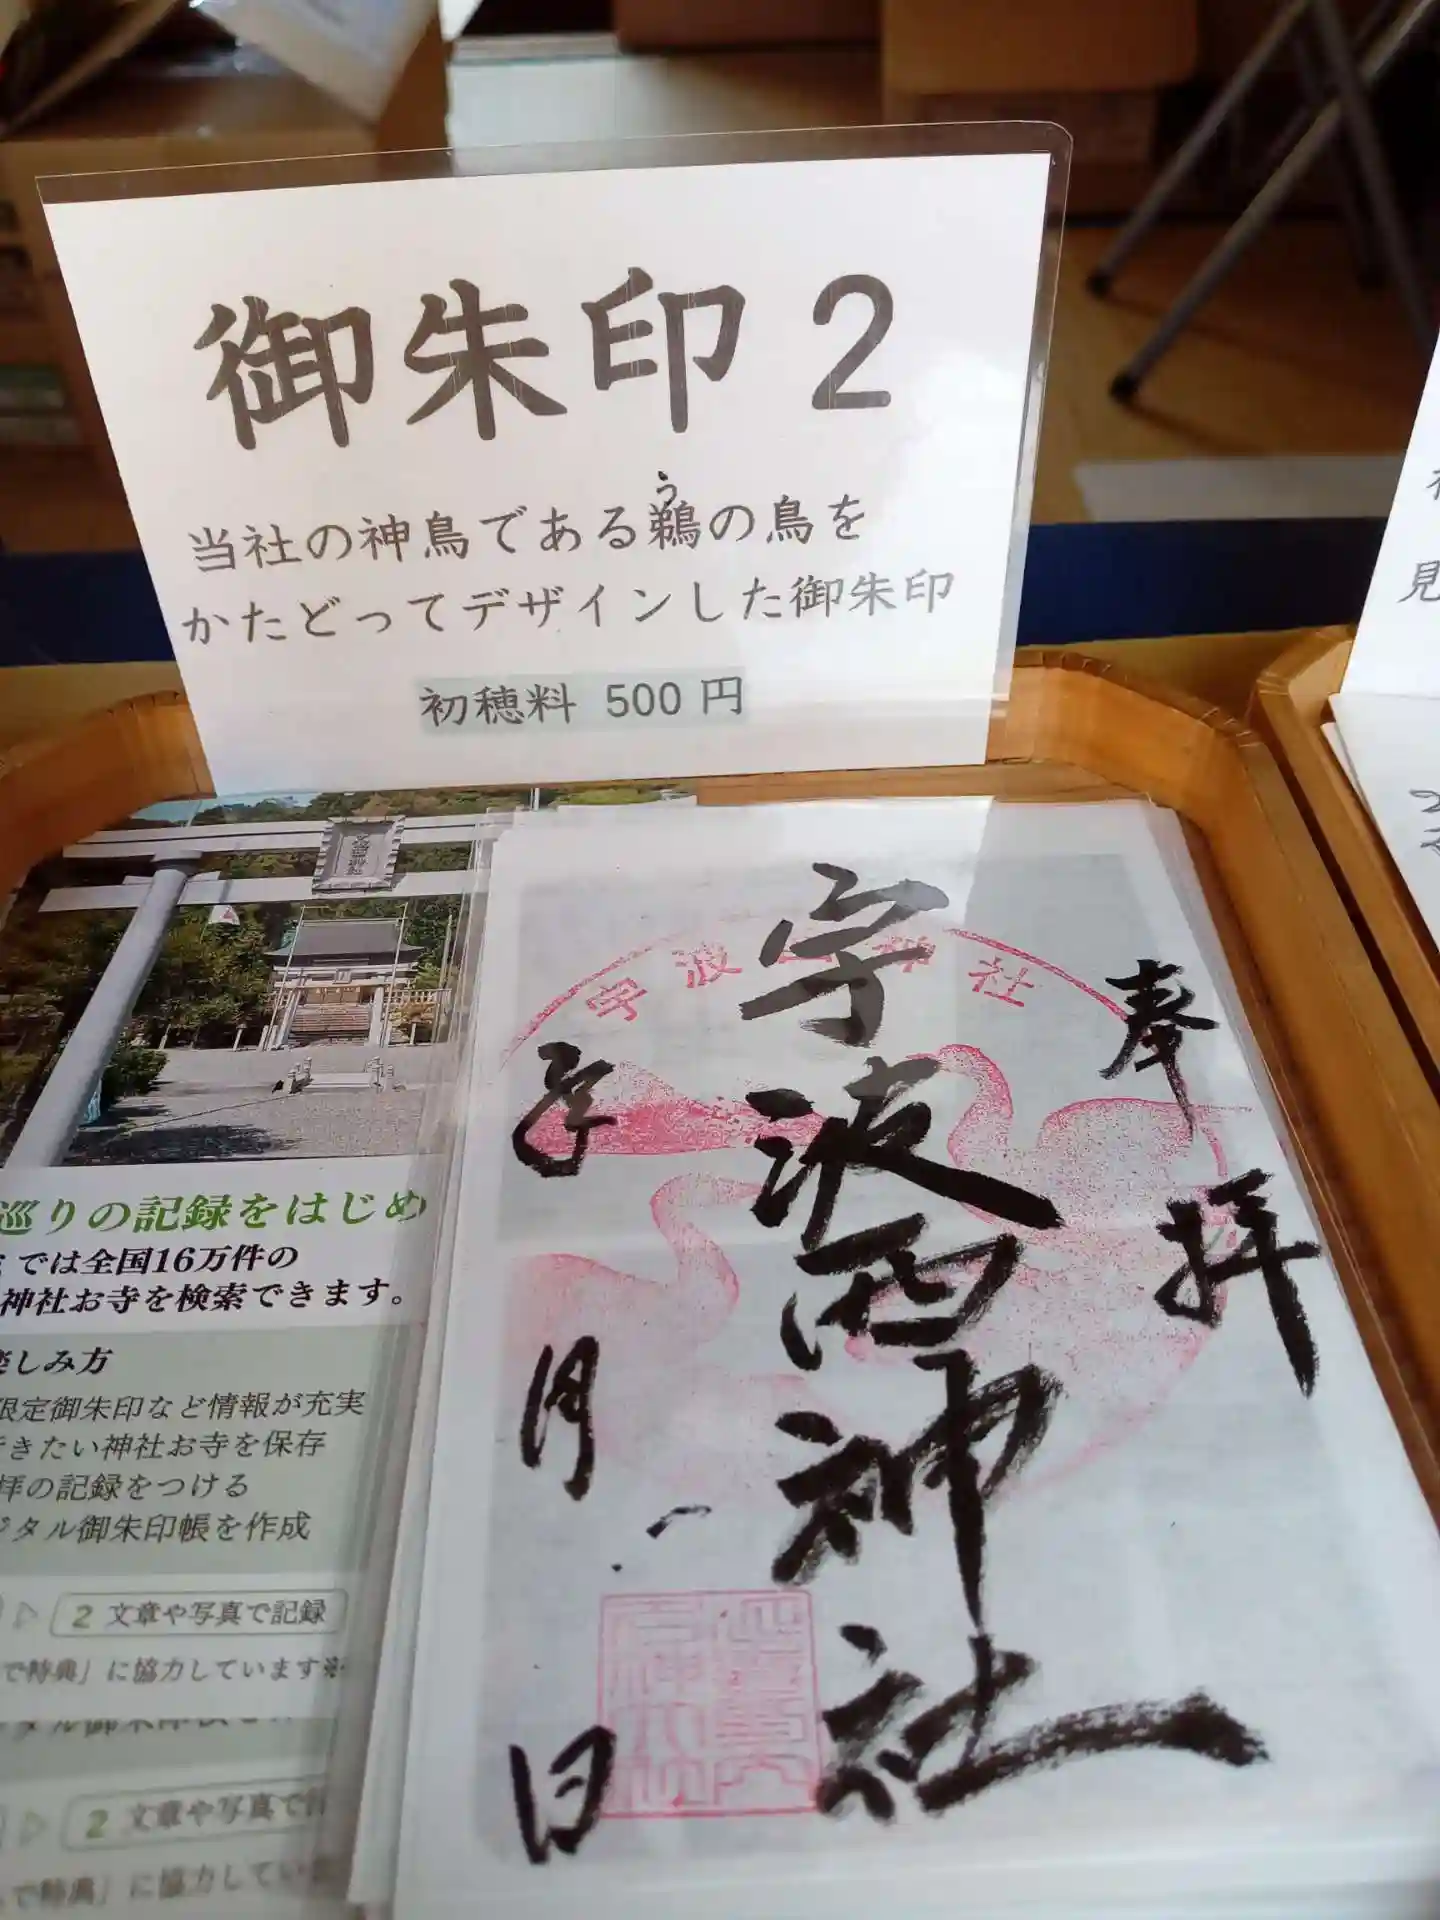 御朱印 2
う
当社の神鳥である鵜の鳥を
かたどってデザインした御朱印
初穂料 500 円
奉拝
宇波西神社
年
月
日
宇波西神社
巡りの記録をはじめ
では全国16万件の
神社お寺を検索できます。
楽しみ方
限定御朱印など情報が充実
行きたい神社お寺を保存
拝の記録をつける
ジタル御朱印帳を作成
2 文章や写真で記録
で特典」に協力しています※
2 文章や写真で
で特典」に協力してい
見